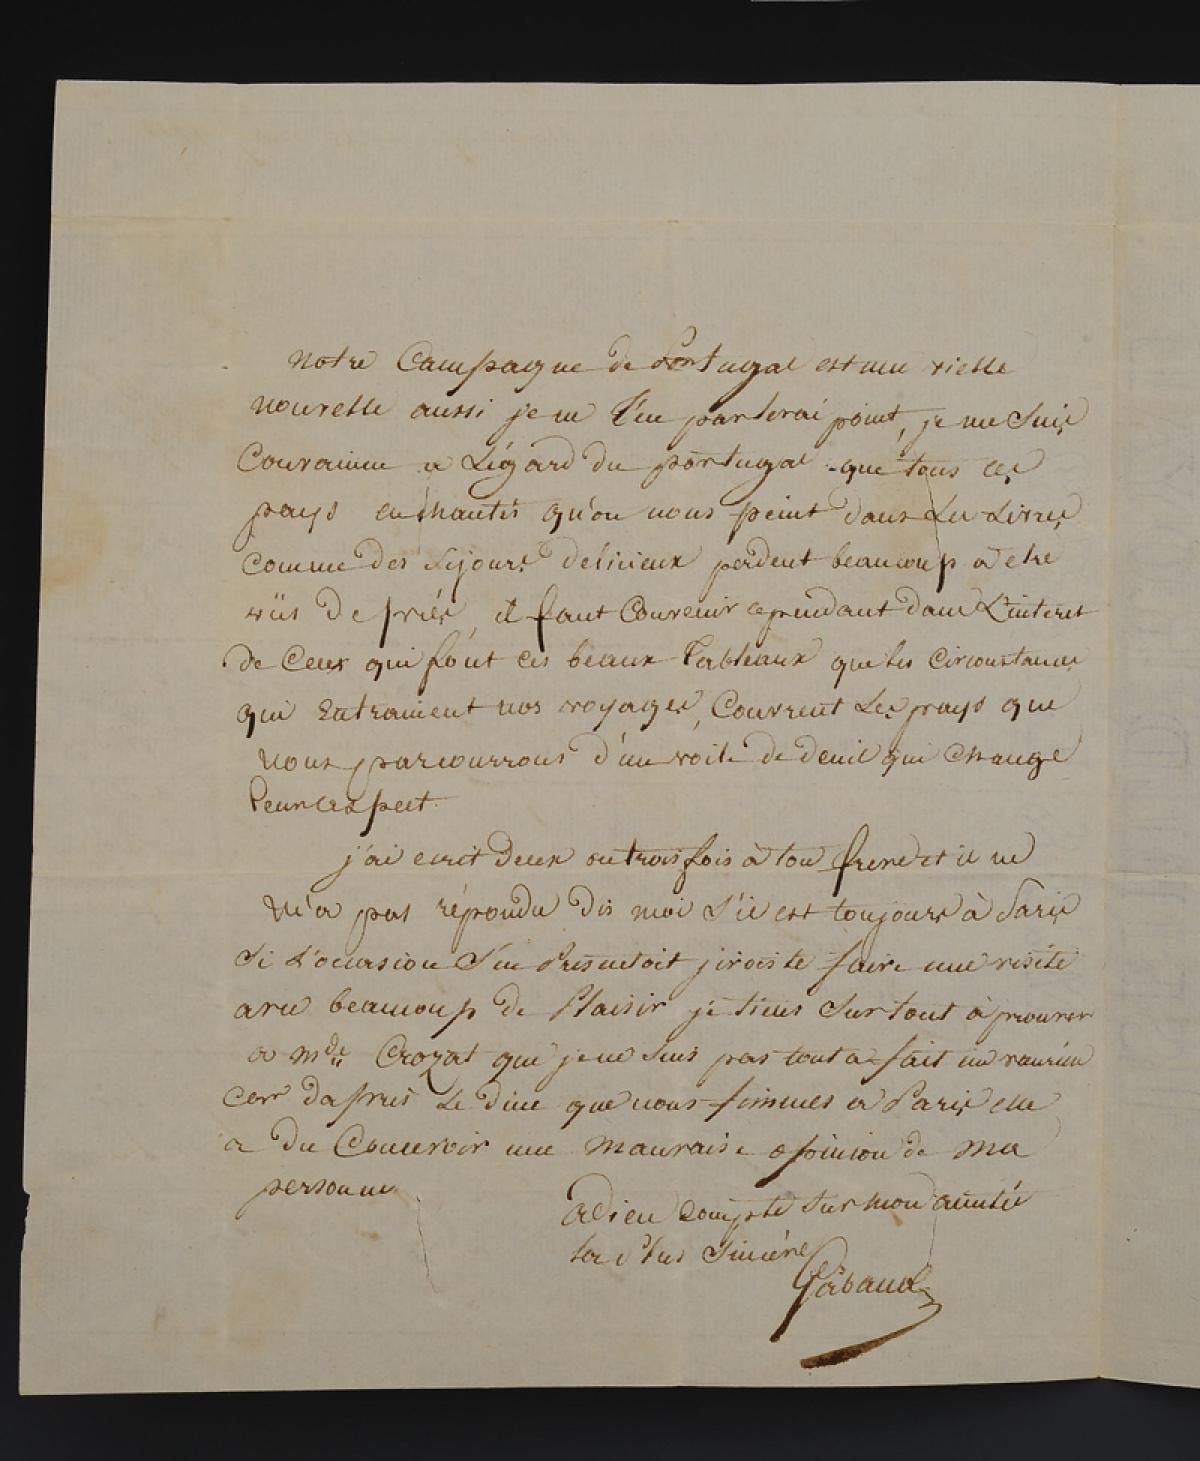 notre Campagne de Portugal est une vielle
nouvelle aussi je ne t'en parlerai point, je me suis
Convaincu a L'égard du portugal que tous ces
pays enchantés qu'on nous peint dans Les Livres
comme des séjours delicieux perdent beaucoup a etre
vüs de près, il faut Convenir cependant dans L'interet
de Ceux qui font ces beaux tableaux que les circonstances
qui Entrainent nos voyages, Couvrent Les pays que
nous parcourrons d'un voile de deuil qui change
leur aspect.
j'ai ecrit deux ou trois fois à ton frere et il ne
m'a pas répondu dis moi s'il est toujours à Paris
Si L'occasion s'en Presentoit j'irois te faire une visite
avec beaucoup de Plaisir je tiens surtout à prouver
a mde Crozat que je ne suis pas tout a fait un vaurien
car dapres Le dine que nous fimmes a Paris elle
a du Concevoir une mauvaise opinion de ma
personne
adieu compte sur mon amitié
la Plus sincére
Gabaud